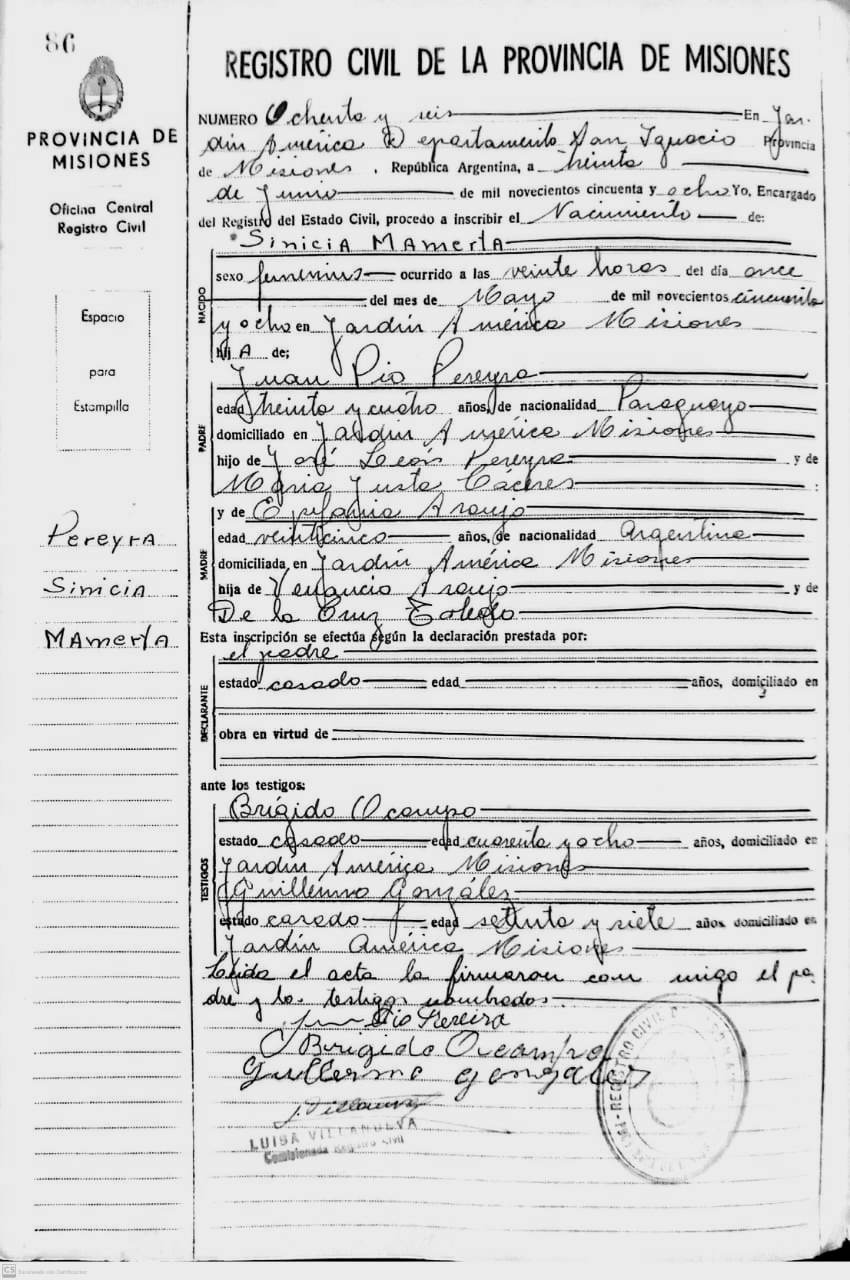 86
PROVINCIA DE
MISIONES
Oficina Central
Registro Civil
Espacio
para
Estampilla
Pereyra
Sinicia
Mamerta
REGISTRO CIVIL DE LA PROVINCIA DE MISIONES
NUMERO Ochenta y seis En Jar-
din América Departamento San Ignacio Provincia
de Misiones , República Argentina, a treinta
de Junio de mil novecientos cincuenta y ocho Yo, Encargado
del Registro del Estado Civil, procedo a inscribir el Nacimiento de:
Sinicia Mamerta
NACIDO
sexo femenino ocurrido a las veinte horas del día once
del mes de Mayo de mil novecientos cincuenta
y ocho en Jardín América Misiones
hij A de;
Juan Pio Pereyra
PADRE
edad treinta y cuatro años, de nacionalidad Paraguayo
domiciliado en Jardín América Misiones
hijo de José León Pereyra y de
Maria Justa Cáceres :
MADRE
y de Epifania Araujo
edad veinticinco años, de nacionalidad Argentina
domiciliada en Jardín América Misiones
hija de Venancio Araujo y de
De la Cruz Toledo
Esta inscripción se efectúa según la declaración prestada por:
DECLARANTE
el padre
estado casado edad años, domiciliado en
obra en virtud de
ante los testigos:
TESTIGOS
Brígido Ocampo
estado casado edad cuarenta y ocho años, domiciliado en
Jardín América Misiones
Guillermo González
estado casado edad setenta y siete años domiciliado en
Jardín América Misiones
Leída el acta la firmaron con migo el pa-
dre y los testigos nombrados.
Juan Pio Pereira
Brigido Ocampo
Guillermo Gonzalez
Villanueva
LUISA VILLANUEVA
Comisionada Registro Civil
REGISTRO CIVIL
CS